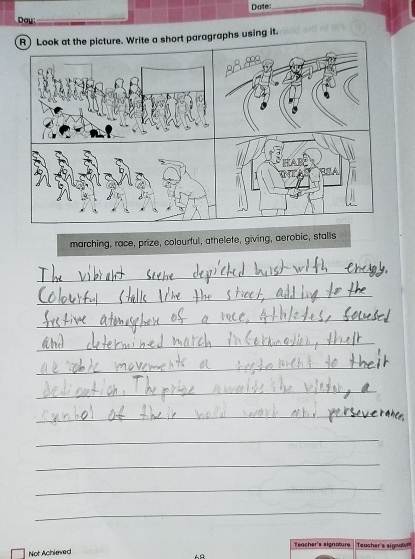 Date:
Day:
R Look at the picture. Write a short paragraphs using it.
marching, race, prize, colourful, athelete, giving, aerobic, stalls
The vibrant scene depicted burst with energy.
Colourful stalls line the street, adding to the
festive atmosphere of a race. Athletes, focused
and determined march in formation, their
aerobic movements a testament to their
dedication. The prize awaits the victor, a
symbol of their hard work and perseverance.
Not Achieved
68
Teacher's signature
Teacher's signature